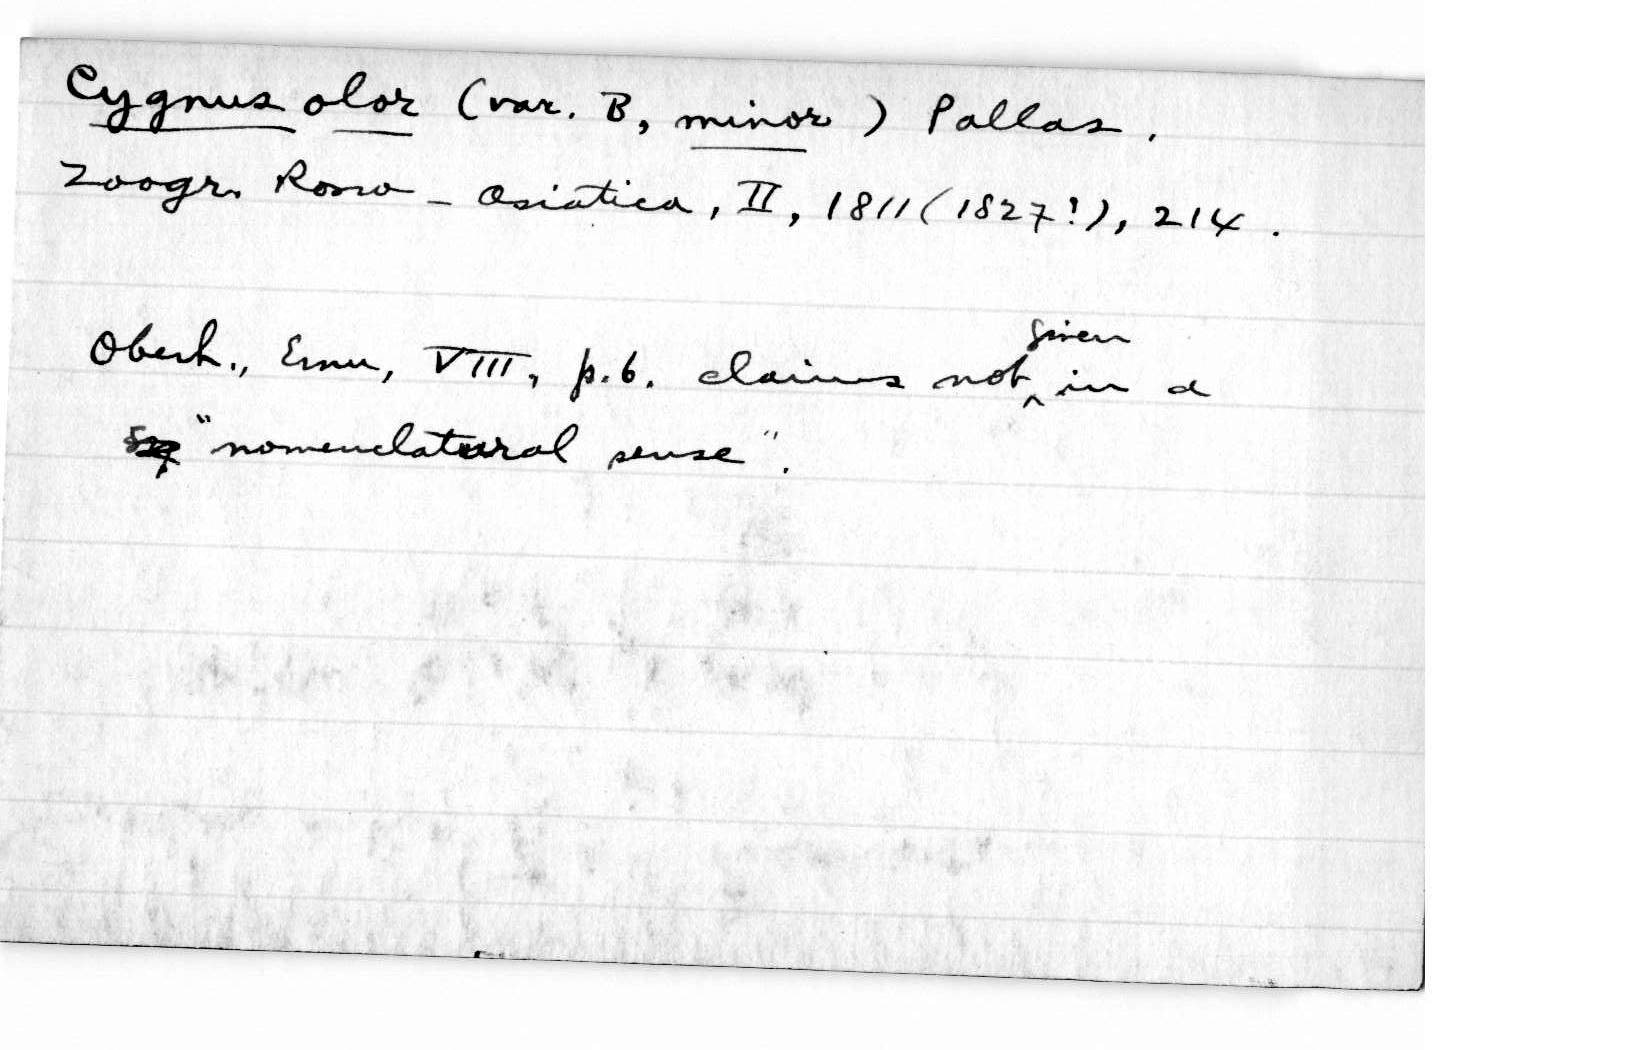 Cygnus olor (var. B, minor) Pallas.
Zoogr. Rosso-Asiatica, II, 1811 (1827?), 214.
Oberh., Emu, VIII, p.6. claims not given in a
"nomenclatural sense".